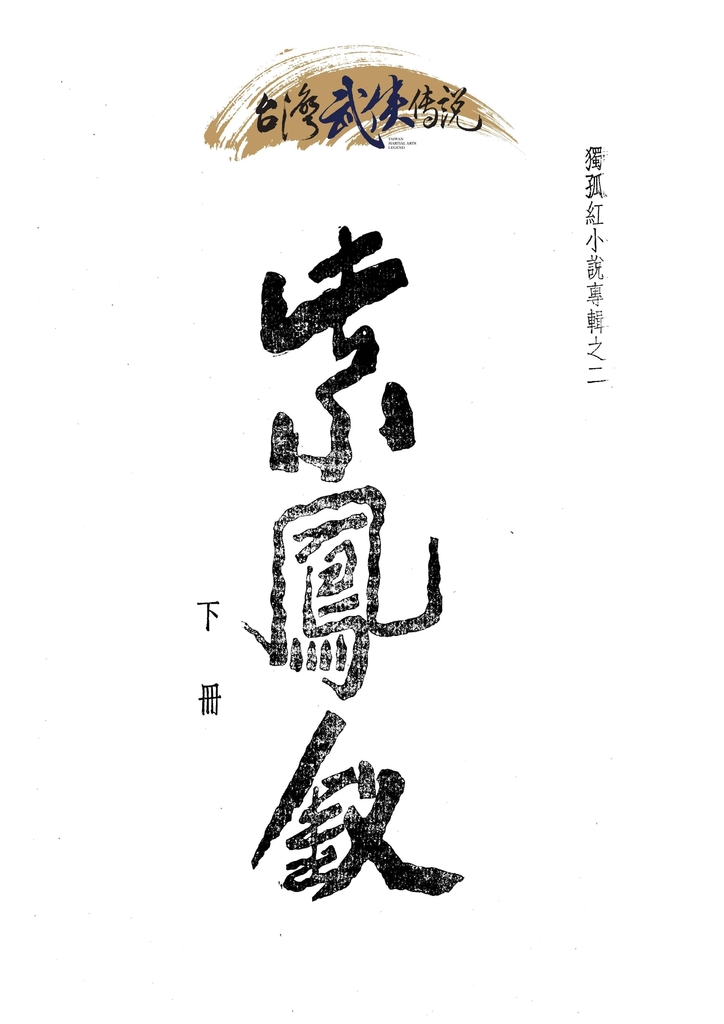 台灣武侠传説
TAIWAN
MARTIAL ARTS
LEGEND
獨孤紅小說專輯之二
紫鳳釵
下冊